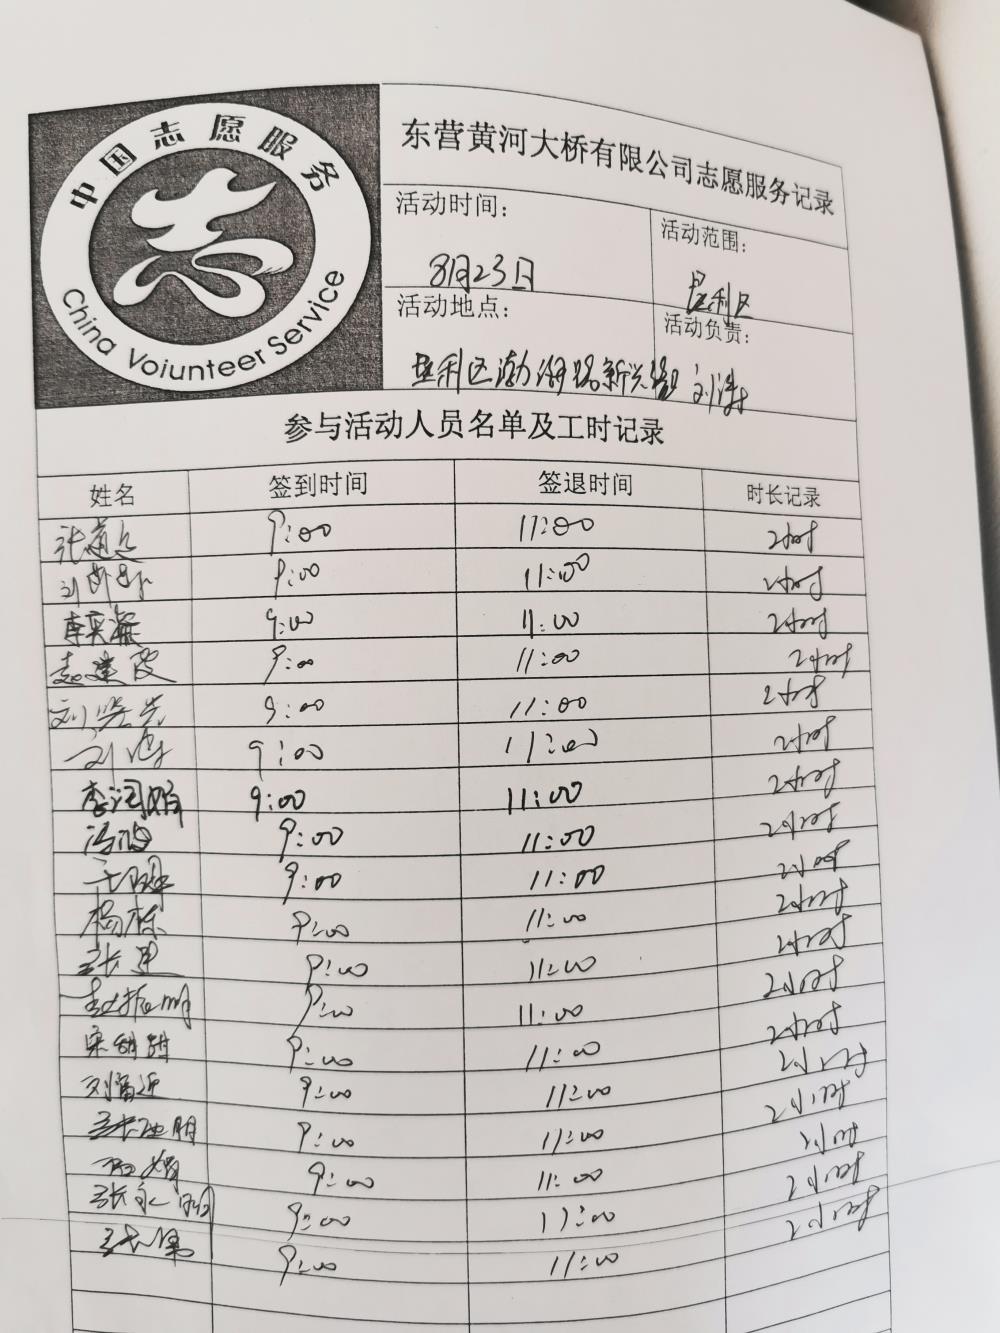 中国志愿服务
China Voiunteer Service
东营黄河大桥有限公司志愿服务记录
活动时间：
8月23日
活动范围：
垦利区
活动地点：
垦利区渤海路新兴
活动负责：
刘涛
参与活动人员名单及工时记录
姓名 签到时间 签退时间 时长记录
9:00 11:00 2小时
9:00 11:00 2小时
9:00 11:00 2小时
赵建 9:00 11:00 2小时
刘 9:00 11:00 2小时
刘涛 9:00 11:00 2小时
李润娟 9:00 11:00 2小时
冯波 9:00 11:00 2小时
9:00 11:00 2小时
杨栋 9:00 11:00 2小时
张建 9:00 11:00 2小时
赵振明 9:00 11:00 2小时
宋甜甜 9:00 11:00 2小时
刘 9:00 11:00 2小时
张 朋 9:00 11:00 2小时
9:00 11:00 2小时
张永 9:00 11:00 2小时
张伟 9:00 11:00 2小时